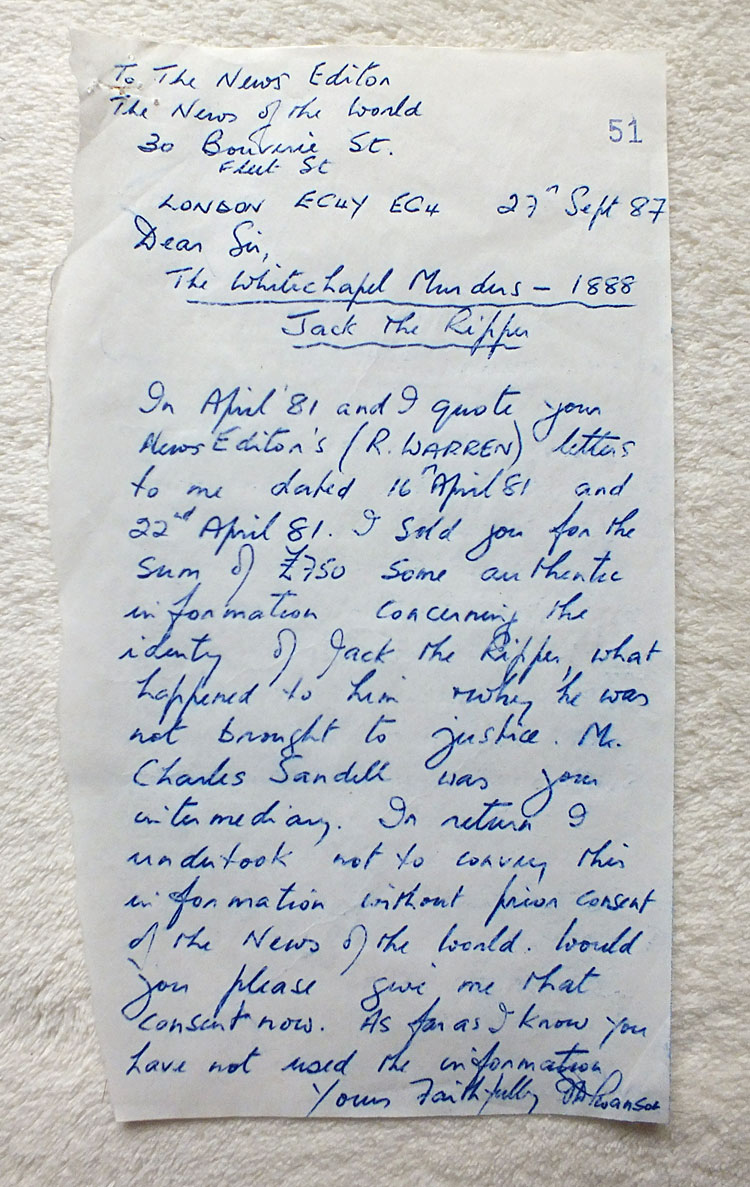 To The News Editor
The News of the World
51
30 Bouverie St.
Fleet St
LONDON EC4Y EC4 27th Sept 87
Dear Sir,
The Whitechapel Murders - 1888
Jack the Ripper
In April '81 and I quote your
News Editor's (R. WARREN) letters
to me dated 16th April 81 and
22nd April 81. I sold you for the
sum of £750 some authentic
information concerning the
identy of Jack the Ripper, what
happened to him & why he was
not brought to justice. Mr.
Charles Sandell was your
intermediary. In return I
undertook not to convey this
information without prior consent
of the News of the World. Would
you please give me that
consent now. As far as I know you
have not used the information
Yours Faithfully JSwanson